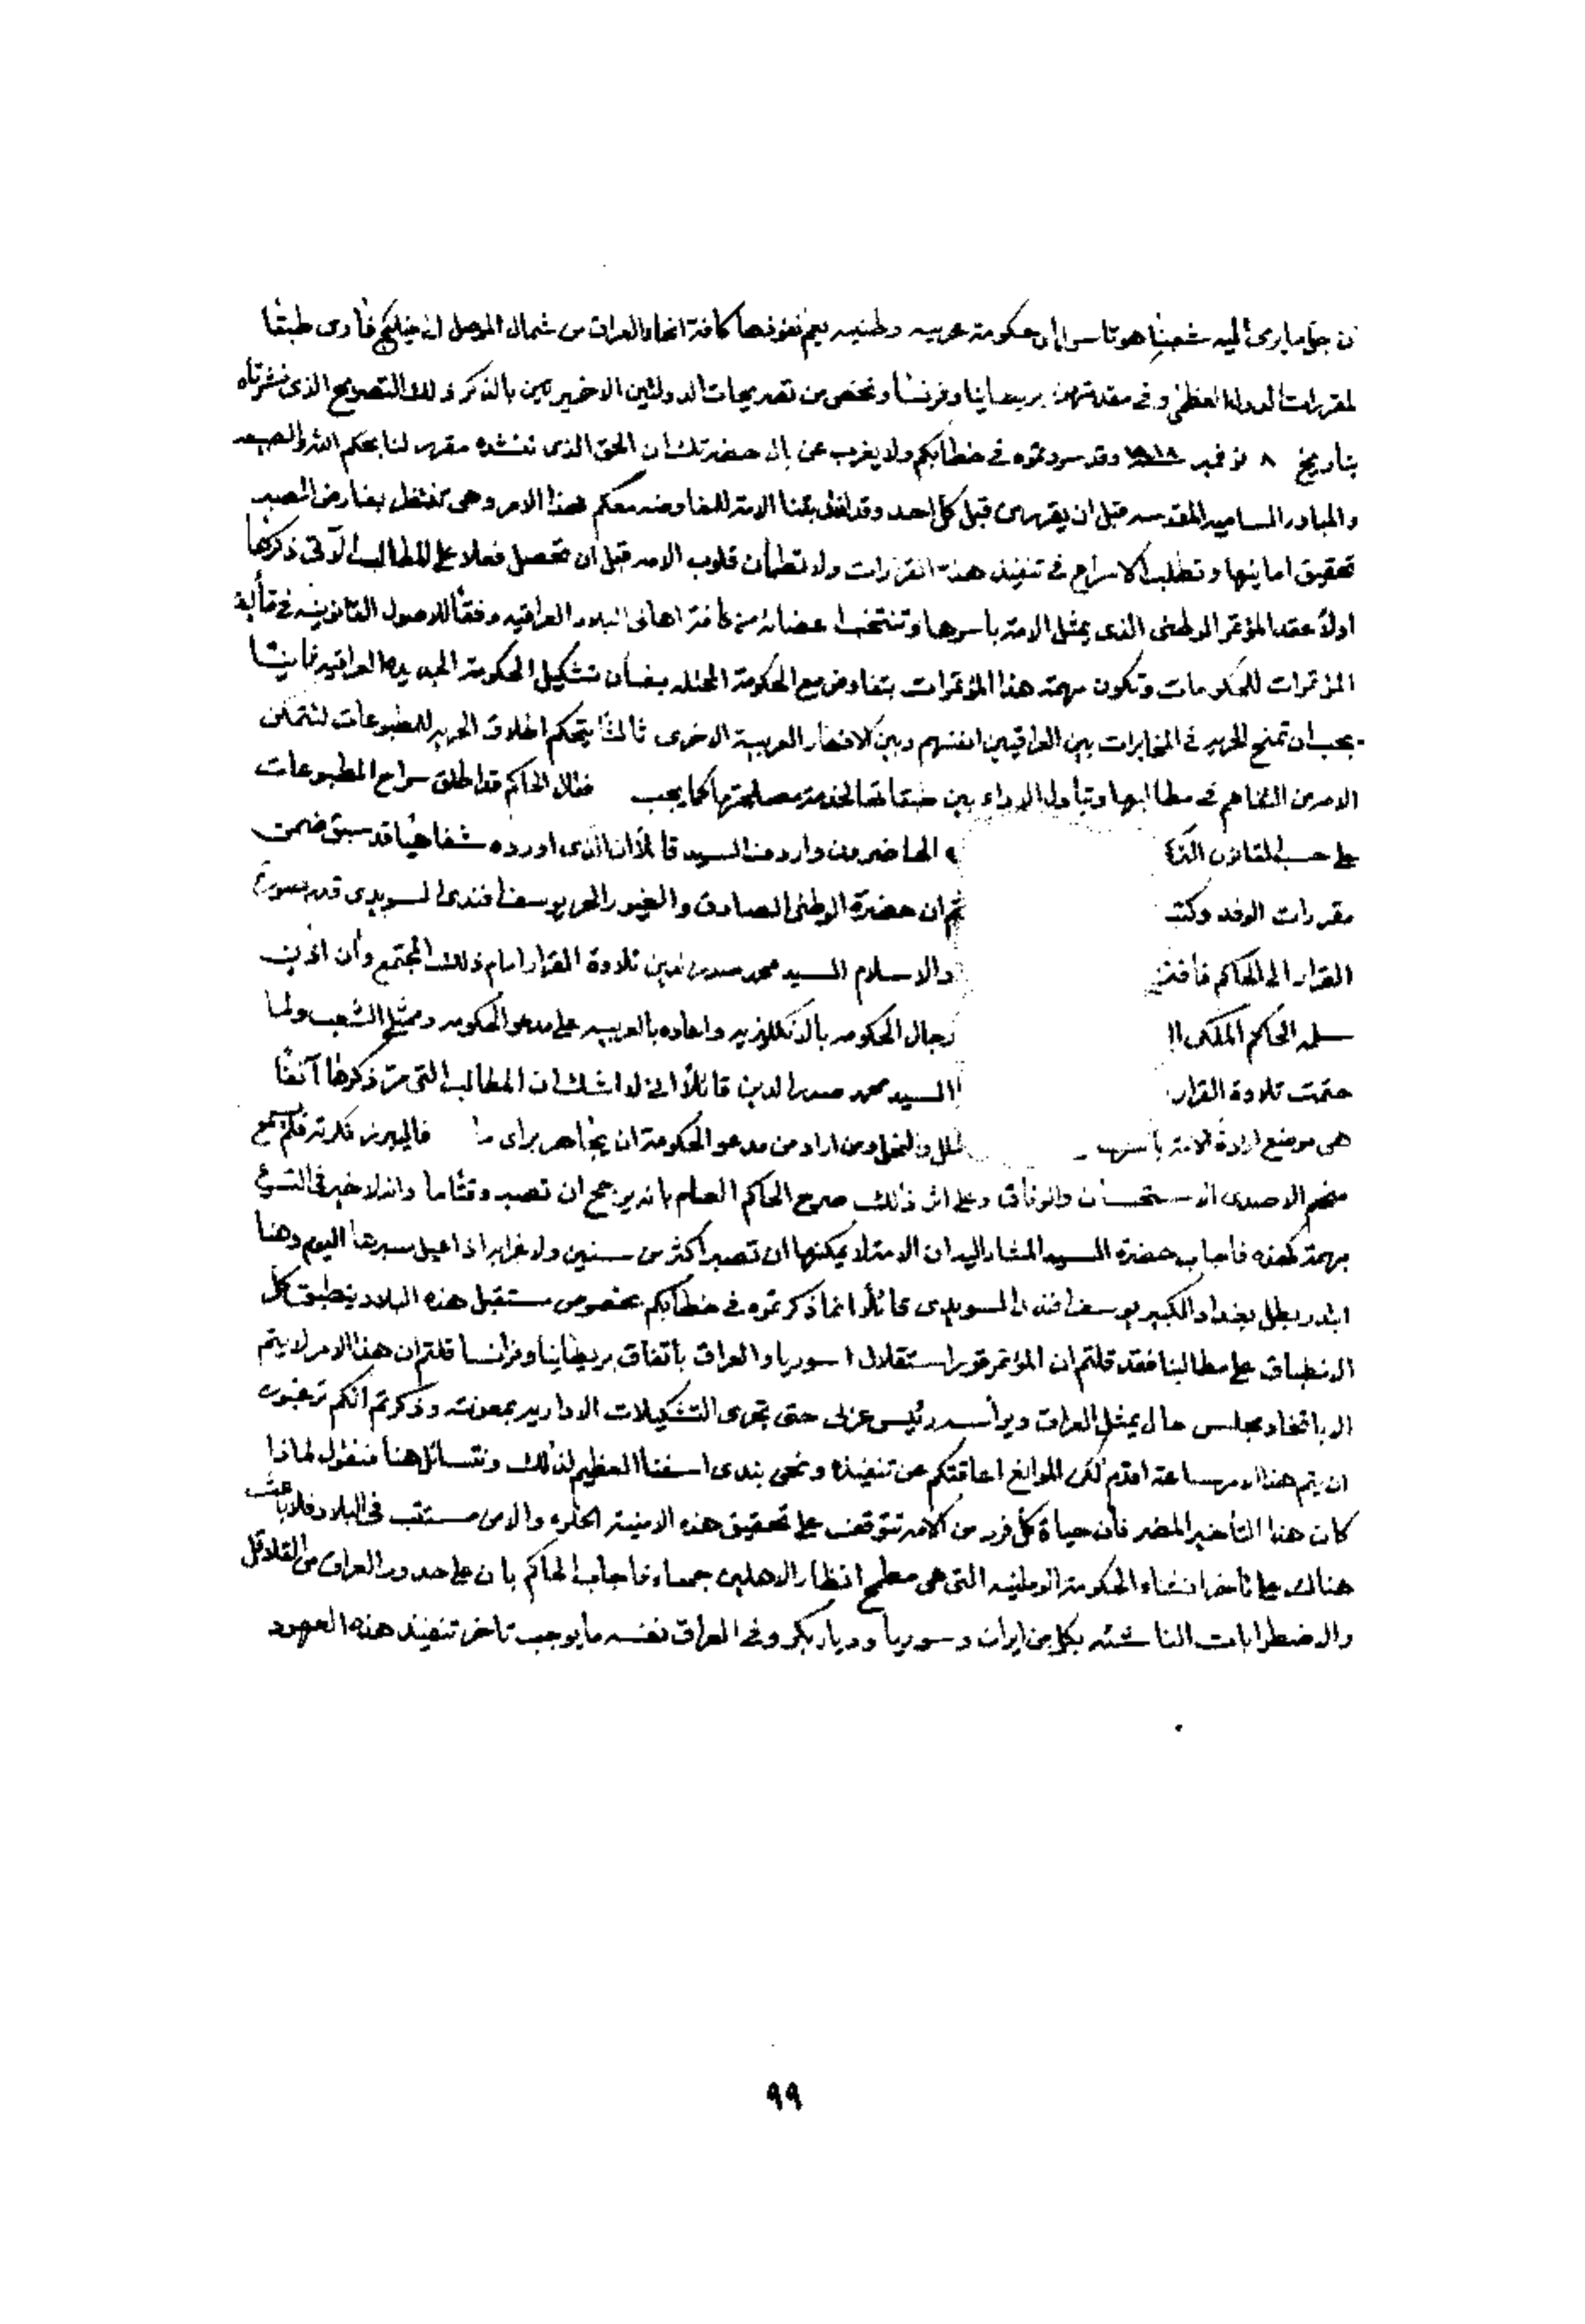 ن جل ما يرمى اليه شعبنا هو تاسيس حكومة عربيه وطنيه يعم نفوذها كافة انحاء العراق من شمال الموصل الى خليج فارس طبقا
لمقررات الدول العظمى وفى مقدمتهن بريطانيا وفرنسا ونخص من تصريحات الدولتين الاخيرتين بالذكر ذلك التصريح الذى نشرتاه
بتاريخ ٨ نوفمبر ١٩١٨ وقد سردتموه فى خطابكم ولا يغرب عن بال حضرتك ان الحق الذى ننشده مقرر لنا بحكم
والمبادء الساميه المقدسه قبل ان يقرره اى قبل كل احد وقد بثتنا الامة للمفاوضه معكم بهذا الامر وهى تنتظر بفارغ الصبر
تحقيق امانيها وتطلب الاسراع فى تنفيذ هذه القرارات ولا تطمأن قلوب الامه قبل ان تحصل فعلا على المطالب الآتى ذكرها
اولاً عقد المؤتمر الوطنى الذى يمثل الامة باسرها وتنتخب اعضائه من كافة اهالى البلاد العراقيه وفقاً للاصول القانونيه فى
المؤتمرات للحكومات وتكون مهمة هذا المؤتمرات بتفاوض مع الحكومة المحتله بشأن تشكيل الحكومة الجديده العراقيه ثانيا
يجب ان تمنح الحريه فى المخابرات بين العراقيين انفسهم وبين الاقطار العربية الاخرى ثالثاً يتحكم اطلاق الحريه للمطبوعات لتتمكن
الامه من التفاهم فى مطالبها وتبادل الاراء بين طبقاتها لخدمة مصلحتها كما يجب فقال الحاكم قد اطلق سراح المطبوعات
على حسب القانون الحاضرون واردف السيد قائلاً ان الذى اورده شفاهيا قد سبق ضمن
مقررات الوفد ثم ان حضرة الوطنى الصادق والغيور الحر يوسف افندى السويدى قدم
القرار الى الحاكم والاسلام السيد محمد صدر الدين تلاوة القرار امام ذلك المجتمع وأن
سلمه الحاكم الملكى رجال الحكومه بالانكليزيه واعاده بالعربيه على مدعو الحكومه وممثلى الشعب ولما
ختمت تلاوة القرار السيد محمد صدر الدين قائلاً انى لا اشك ان المطالب التى مر ذكرها آنفا
هى موضع ارادة الامة بأسرها ومن اراد من مدعو الحكومة ان يجاهر براى ما فاليبرز فكرته فلم يسمع
منهم الا صدى الاستحسان والوفاق وعلى اثر ذلك صرح الحاكم العام بانه يرجح ان تصبر وقتا ما وانه لا خير فى التسرع
بمهمة كهذه فاجاب حضرة السيد المشار اليه ان الامة لا يمكنها ان تصبر اكثر من سنين ولا غرابه اذا عيل صبرها اليوم وهنا
ابتدر بطل بغداد الكبير يوسف افندى السويدى قائلاً انما ذكرتموه فى خطابكم بخصوص مستقبل هذه البلاد ينطبق كل
الانطباق على مطالبنا فقد قلتم ان المؤتمر قرر استقلال اسوريا والعراق باتفاق بريطانيا وفرانسا قلتم ان هذا الامر لا يتم
الا باتخاد مجلس حال يمثل العراق ويرأسه رئيس عربى حتى تجرى التشكيلات الاداريه بمعونته وذكرتم انكم ترغبون
ان يتم هذا الامر ساعة اقدم لكن الموانع اعاقتكم عن تنفيذه ونحن نبدى اسفنا العظيم لذلك ونتسائل هنا فنقول لماذا
كان هذا التأخير المضر فأن حياة كل فرد من الامه تتوقف على تحقيق هذه الامنية الحلوه والامن مستتب فى البلاد فلا باعث
هناك على تأخر انشاء الحكومة الوطنيه التى هى مطمح انظار الاهلين جمعاء فاجاب الحاكم بان على حدود العراق من القلاقل
والاضطرابات الناشئه بكل من ايران وسوريا ودياربكر وفى العراق نفسه ما يوجب تاخر تنفيذ هذه العهود
٩٩